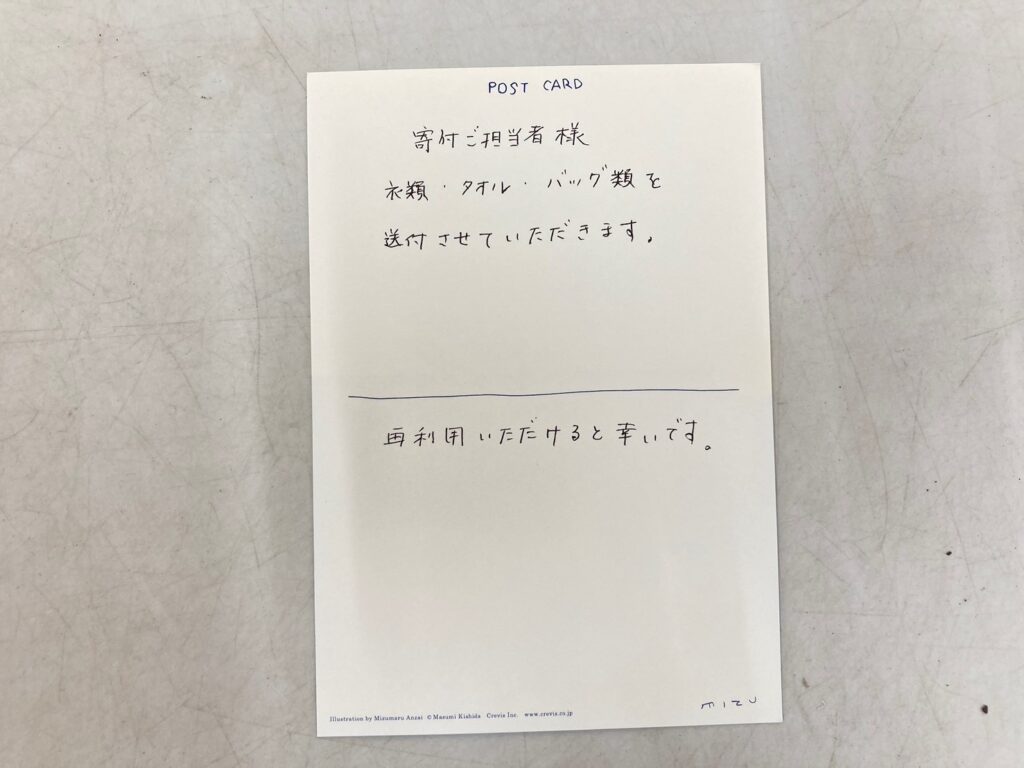 POST CARD
寄付ご担当者様
衣類・タオル・バッグ類を
送付させていただきます。
再利用いただけると幸いです。
Illustration by Mizumaru Anzai © Masumi Kishida Crevis Inc. www.crevis.co.jp
MIZU